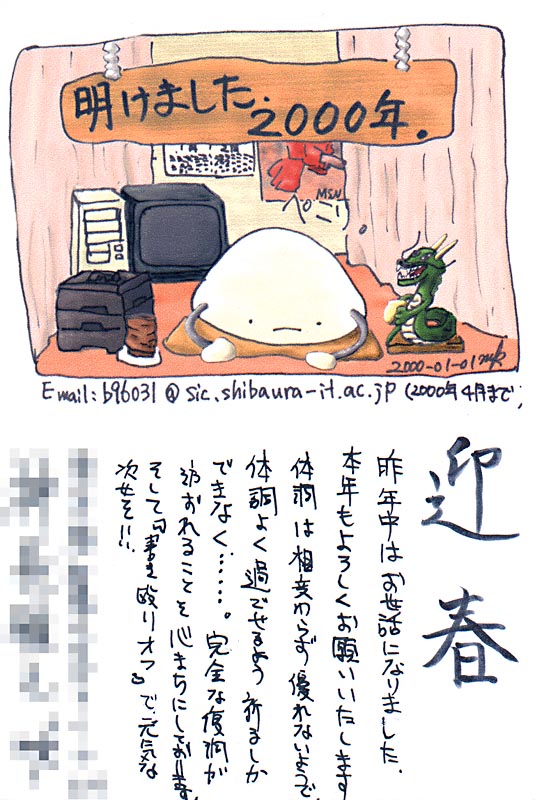 明けました.
2000年.
MSN
ペこり。
2000-01-01
Email:b96031@sic.shibaura-it.ac.jp (2000年4月まで)
迎春
昨年中はお世話になりました.
本年もよろしくお願いいたします
体調は相変わらず優れないようで
体調よく過ごせるよう祈るしか
できなく……。完全な復調が
訪れることを心まちにしております。
そして『書き殴りオフ』で元気な
次女を!!